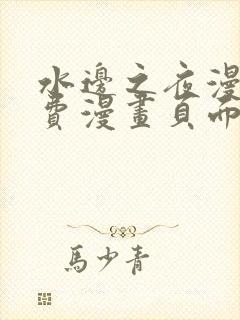 水邊之夜漫
費漫畫頁面
馬少青